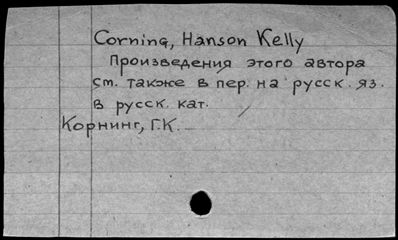 Corning, Hanson Kelly
Произведения этого автора
см. также в пер. на русск. яз.
в русск. кат.
Корнинг, Г.К.